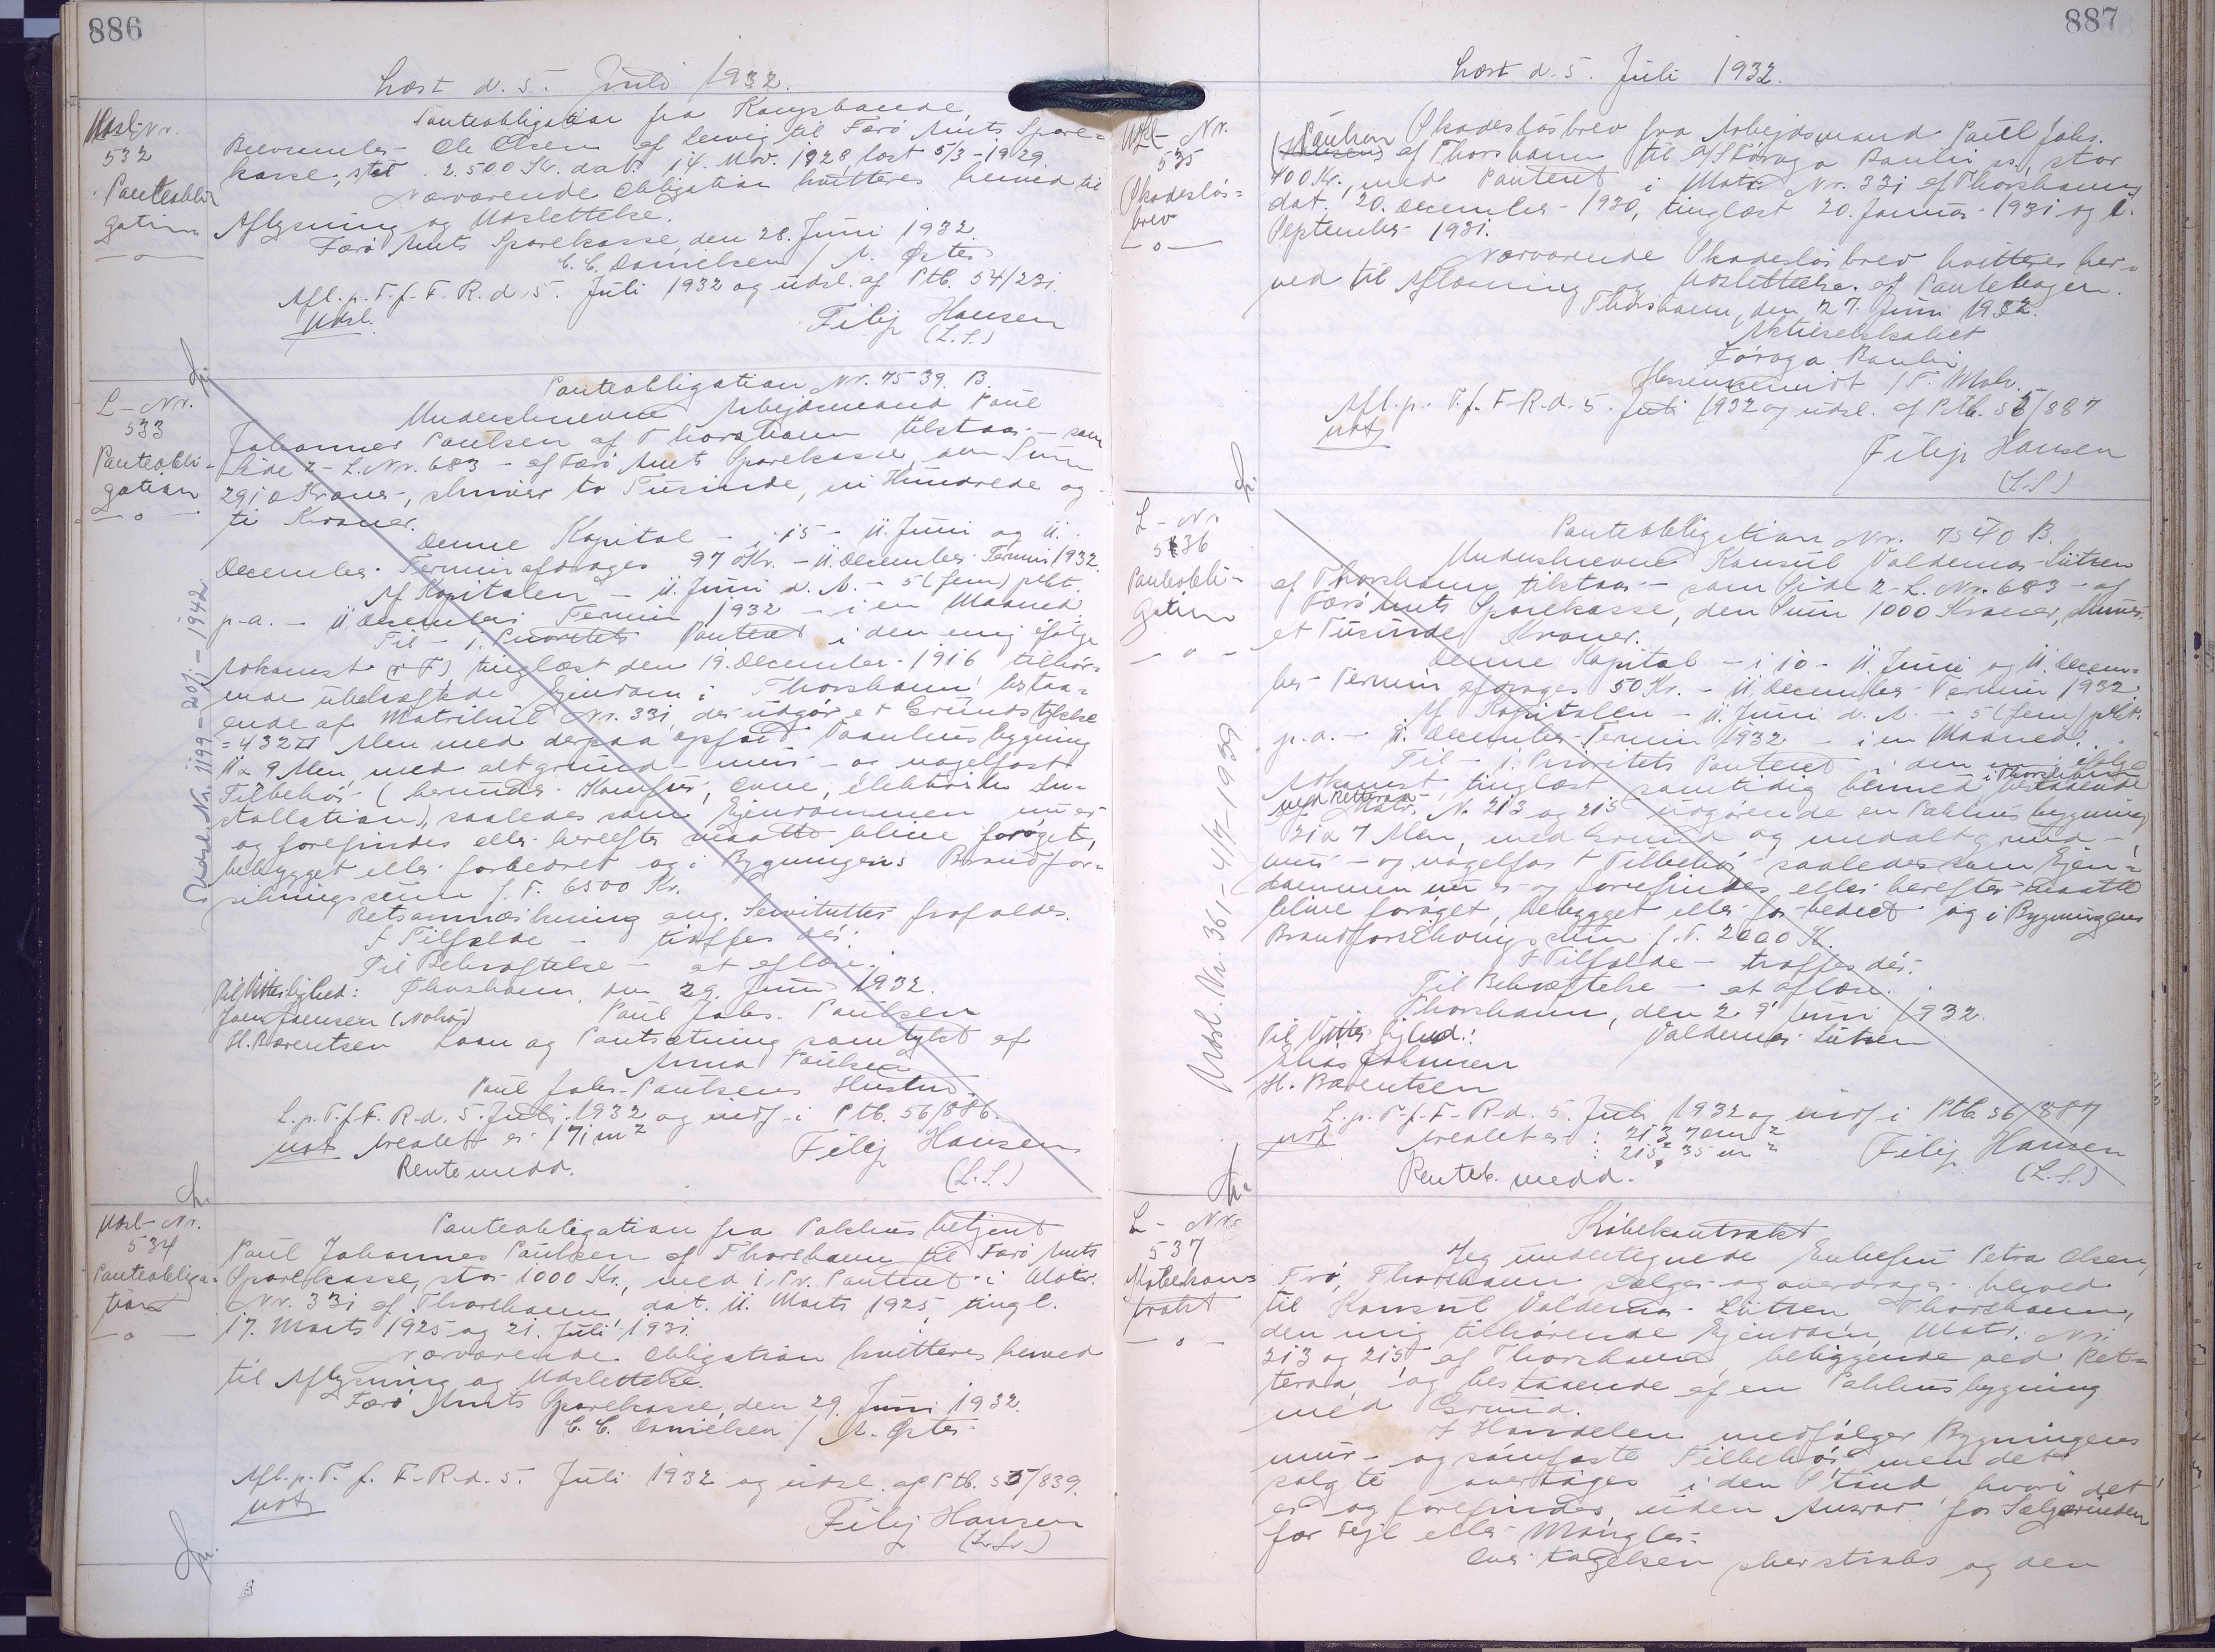 886
Læst d. 5. Juli 1932.
Udsl. Nr.
532
Panteobli-
gation
Panteobligation fra Kongsbonde,
Ole Olsen af Lervig til Færø Amts Spare-
kasse, stor 2.500 Kr. dat. 14. Nov. 1928, læst 5/3-1929.
Nærværende Obligation kvitteres herved til
Aflysning og Udslettelse.
Færø Amts Sparekasse, den 28. Juni 1932
C. C. Danielsen / A.
Afl. p. T. f. F. R. d. 5. Juli 1932 og udsl. af Ptb. 54/231.
Udsl.
Filip Hansen
(L.S.)
L-Nr.
533
Panteobli-
gation
Panteobligation Nr. 7539. B.
Underskrevne Arbejdsmand Paul
Johannes Paulsen af Thorshavn tilstaar - som
Side 2 - L.Nr. 683 - af Færø Amts Sparekasse, den Sum
2910 Kroner, skriver to Tusinde, ni Hundrede og
ti Kroner.
Denne Kapital - i 15 - 11. Juni og 11.
December Termin afdrages 97 Kr. - 11. December Termin 1932.
Af Kapitalen - 11. Juni d. A. - 5 (fem) pCt.
p.a. - 11. December Termin 1932 - i en Maaned
Til - 1. Prioritets Panteret i den mig ifølge
Adkomst (r F), tinglæst den 19. December 1916 tilhør-
ende ubehæftede Ejendom i Thorshavn, bestaa-
ende af Matrikul Nr. 331, der udgør et Grundstykke
= 432 □ Alen med derpaa opført Vaaningshus bygning
11 x 9 Alen, med alt grund- mur- og nagelfast
Tilbehør (herunder Komfur, Ovne, elektrisk In-
stallation), saaledes som Ejendommen nu er
og forefindes eller herefter maatte blive forøget,
bebygget eller forbedret og i Bygningens Brandfor-
sikringssum f. T. 6500 Kr.
Retsanmærkning ang. Servitutter frafaldes.
I Tilfælde - træffes dér.
Til Bekræftelse - at aflæse.
Til Vitterlighed: Thorshavn, den 29. Juni 1932.
Joen Joensen (Nolsø) Paul Johs. Paulsen
H. Bærentsen Laan og Pantsætning samtykt af
Anna Paulsen
Paul Johs. Paulsens Hustru.
L. p. T. f. F. R. d. 5. Juli 1932 og indf. i Ptb. 56/886.
not Arealet er 171 m²
Filip Hansen
Rente medd.
(L.S.)
Udsl. Nr. 1199 - 20/1 - 1942
Udsl-Nr.
534
Panteobliga-
tion
Panteobligation fra Pakhusbetjent
Paul Johannes Paulsen af Thorshavn til Færø Amts
Sparekasse, stor 1000 Kr., med 1. Pr. Panteret i Matr.
Nr. 331 af Thorshavn, dat. 11. Marts 1925, tingl.
17. Marts 1925 og 21. Juli 1931.
Nærværende Obligation kvitteres herved
til Aflysning og Udslettelse.
Færø Amts Sparekasse, den 29. Juni 1932.
C. C. Danielsen / A.
Afl. p. T. f. F. R. d. 5. Juli 1932 og udsl. af Ptb. 55/839.
not
Filip Hansen
(L.S.)
887
Læst d. 5. Juli 1932.
Udsl-Nr.
535
Skadesløs-
brev
Skadesløsbrev fra Arbejdsmand Paul Johs.
Paulsen af Thorshavn til A/S Føroya Banki, stor
400 Kr., med Panteret i Matr. Nr. 331 af Thorshavn,
dat. 20. December 1930, tinglæst 20. Januar 1931 og 1.
September 1931.
Nærværende Skadesløsbrev kvitteres her-
ved til Aflæsning og Udslettelse af Pantebogen.
Thorshavn, den 27. Juni 1932.
Aktieselskabet
Føroya Banki
/ T. Mohr.
Afl. p. T. f. F. R. d. 5. Juli 1932 og udsl. af Ptb. 55/887
not
Filip Hansen
(L.S.)
L-Nr
536
Panteobli-
gation
Panteobligation Nr. 7540 B.
Underskrevne Konsul Valdemar Lützen
af Thorshavn tilstaar - som Side 2 - L. Nr. 683 - af
Færø Amts Sparekasse, den Sum 1000 Kroner, skriver
et Tusinde Kroner.
Denne Kapital - i 10 - 11. Juni og 11. Decem-
ber Termin afdrages 50 Kr. - 11. December Termin 1932.
Af Kapitalen - 11. Juni d. A. - 5 (fem) pCt.
p.a. - 11. December Termin 1932 - i en Maaned.
Til - 1. Prioritets Panteret i den mig ifølge
Adkomst, tinglæst samtidig hermed i Thorshavn bestaaende
ved Retteraa
af Matr. Nr. 213 og 215 udgørende en Pakhusbygning
21 x 7 Alen, med Grund og med alt grund-,
mur- og nagelfast Tilbehør saaledes som Ejen-
dommen nu er og forefindes, eller herefter maatte
blive forøget, bebygget eller forbedret og i Bygningens
Brandforsikringssum f. T. 2000 Kr.
I Tilfælde - træffes dér.
Til Bekræftelse - at aflæse.
Thorshavn, den 29 Juni 1932.
Til Vitterlighed: Valdemar Lützen
Elias Johansen
H. Bærentsen
L. p. T. f. F. R. d. 5. Juli 1932 og indf. i Ptb 56/887
not Arealet er: 213 70 m²
: 215 35 m²
Filip Hansen
Renteb. medd.
(L.S.)
Udsl. Nr. 361 - 4/4 - 1939
L-Nr.
537
Købekon-
trakt
Købekontrakt
Jeg undertegnede Enkefru Petra Olsen,
Trø, Thorshavn sælger og overdrager herved
til Konsul Valdemar Lützen, Thorshavn,
den mig tilhørende Ejendom, Matr. Nr.
213 og 215 af Thorshavn, beliggende ved Ret-
teraa, og bestaaende af en Pakhusbygning
med Grund.
I Handelen medfølger Bygningens
mur- og sømfaste Tilbehør, men det
solgte overtages i den Stand, hvori det
er og forefindes, uden Ansvar for Sælgerinden
for Fejl eller Mangler.
Overtagelsen sker straks og den